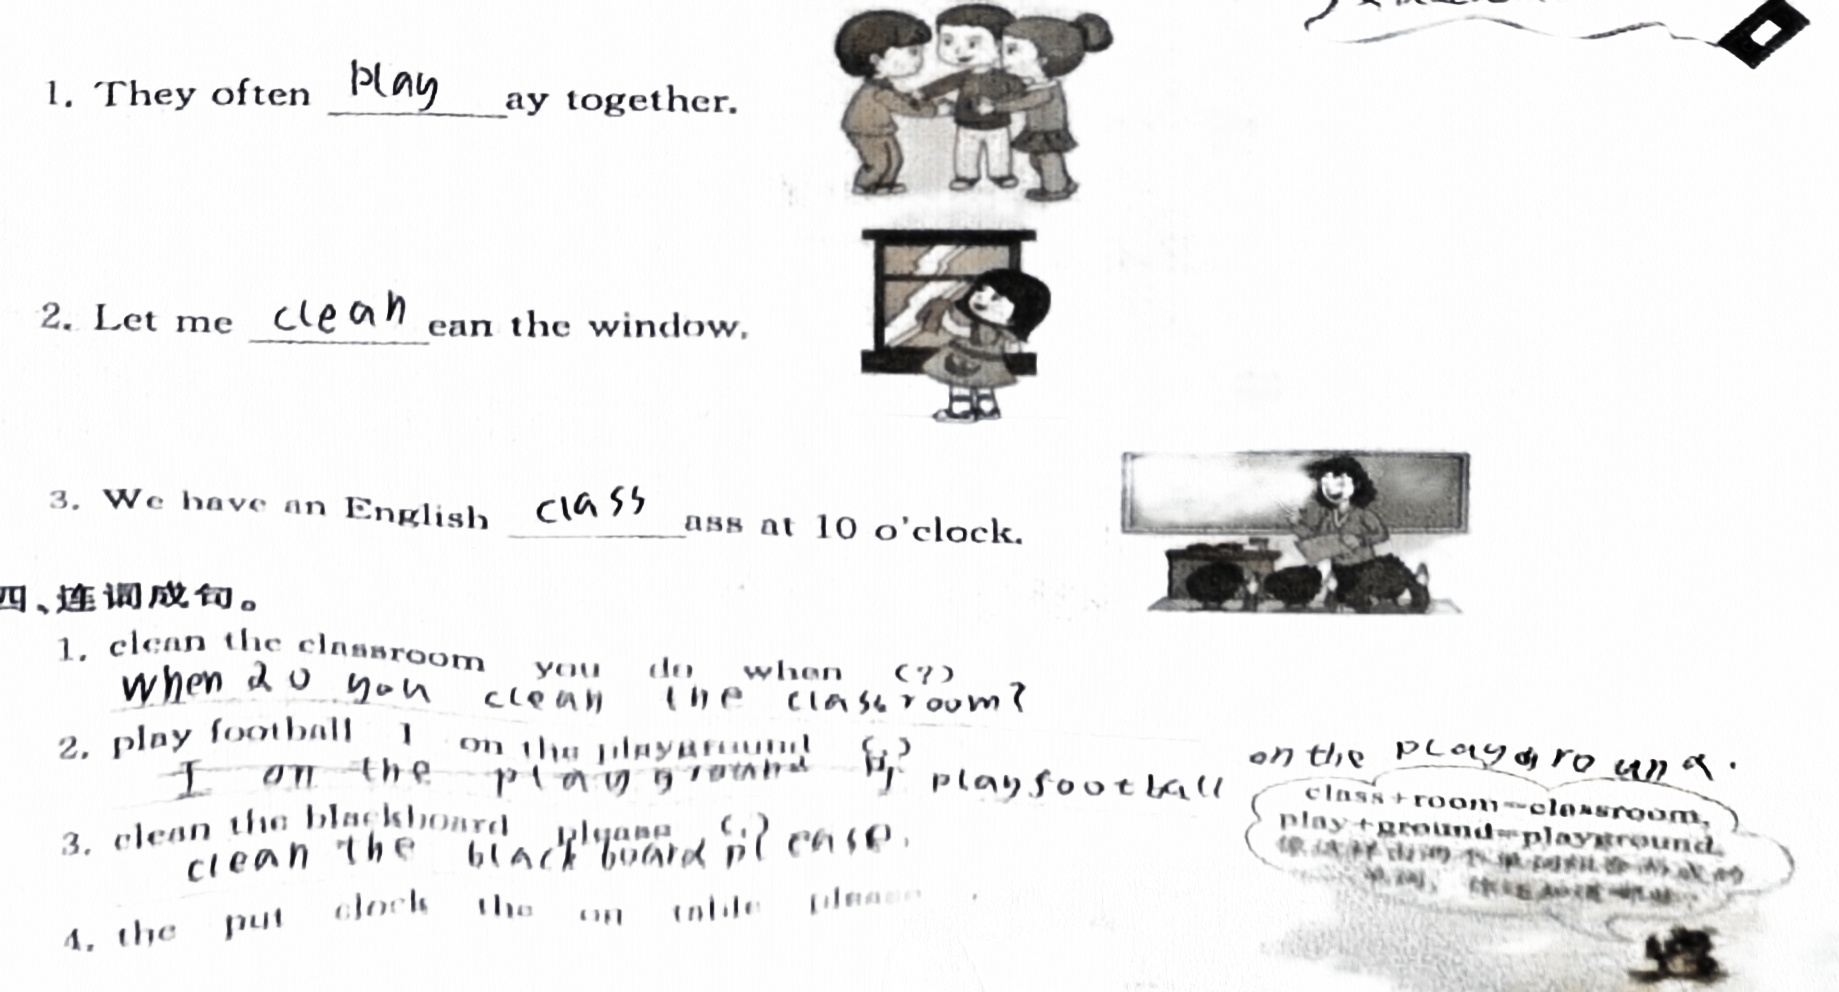 1. They often play ay together.
2. Let me clean ean the window.
3. We have an English class ass at 10 o'clock.
四、连词成句。
1. clean the classroom you do when (?)
When do you clean the classroom?
2. play football I on the playground (.)
I on the playground play football on the playground.
3. clean the blackboard please (.)
clean the blackboard please.
4. the put clock the on table please
class+room=classroom,
play+ground=playground.